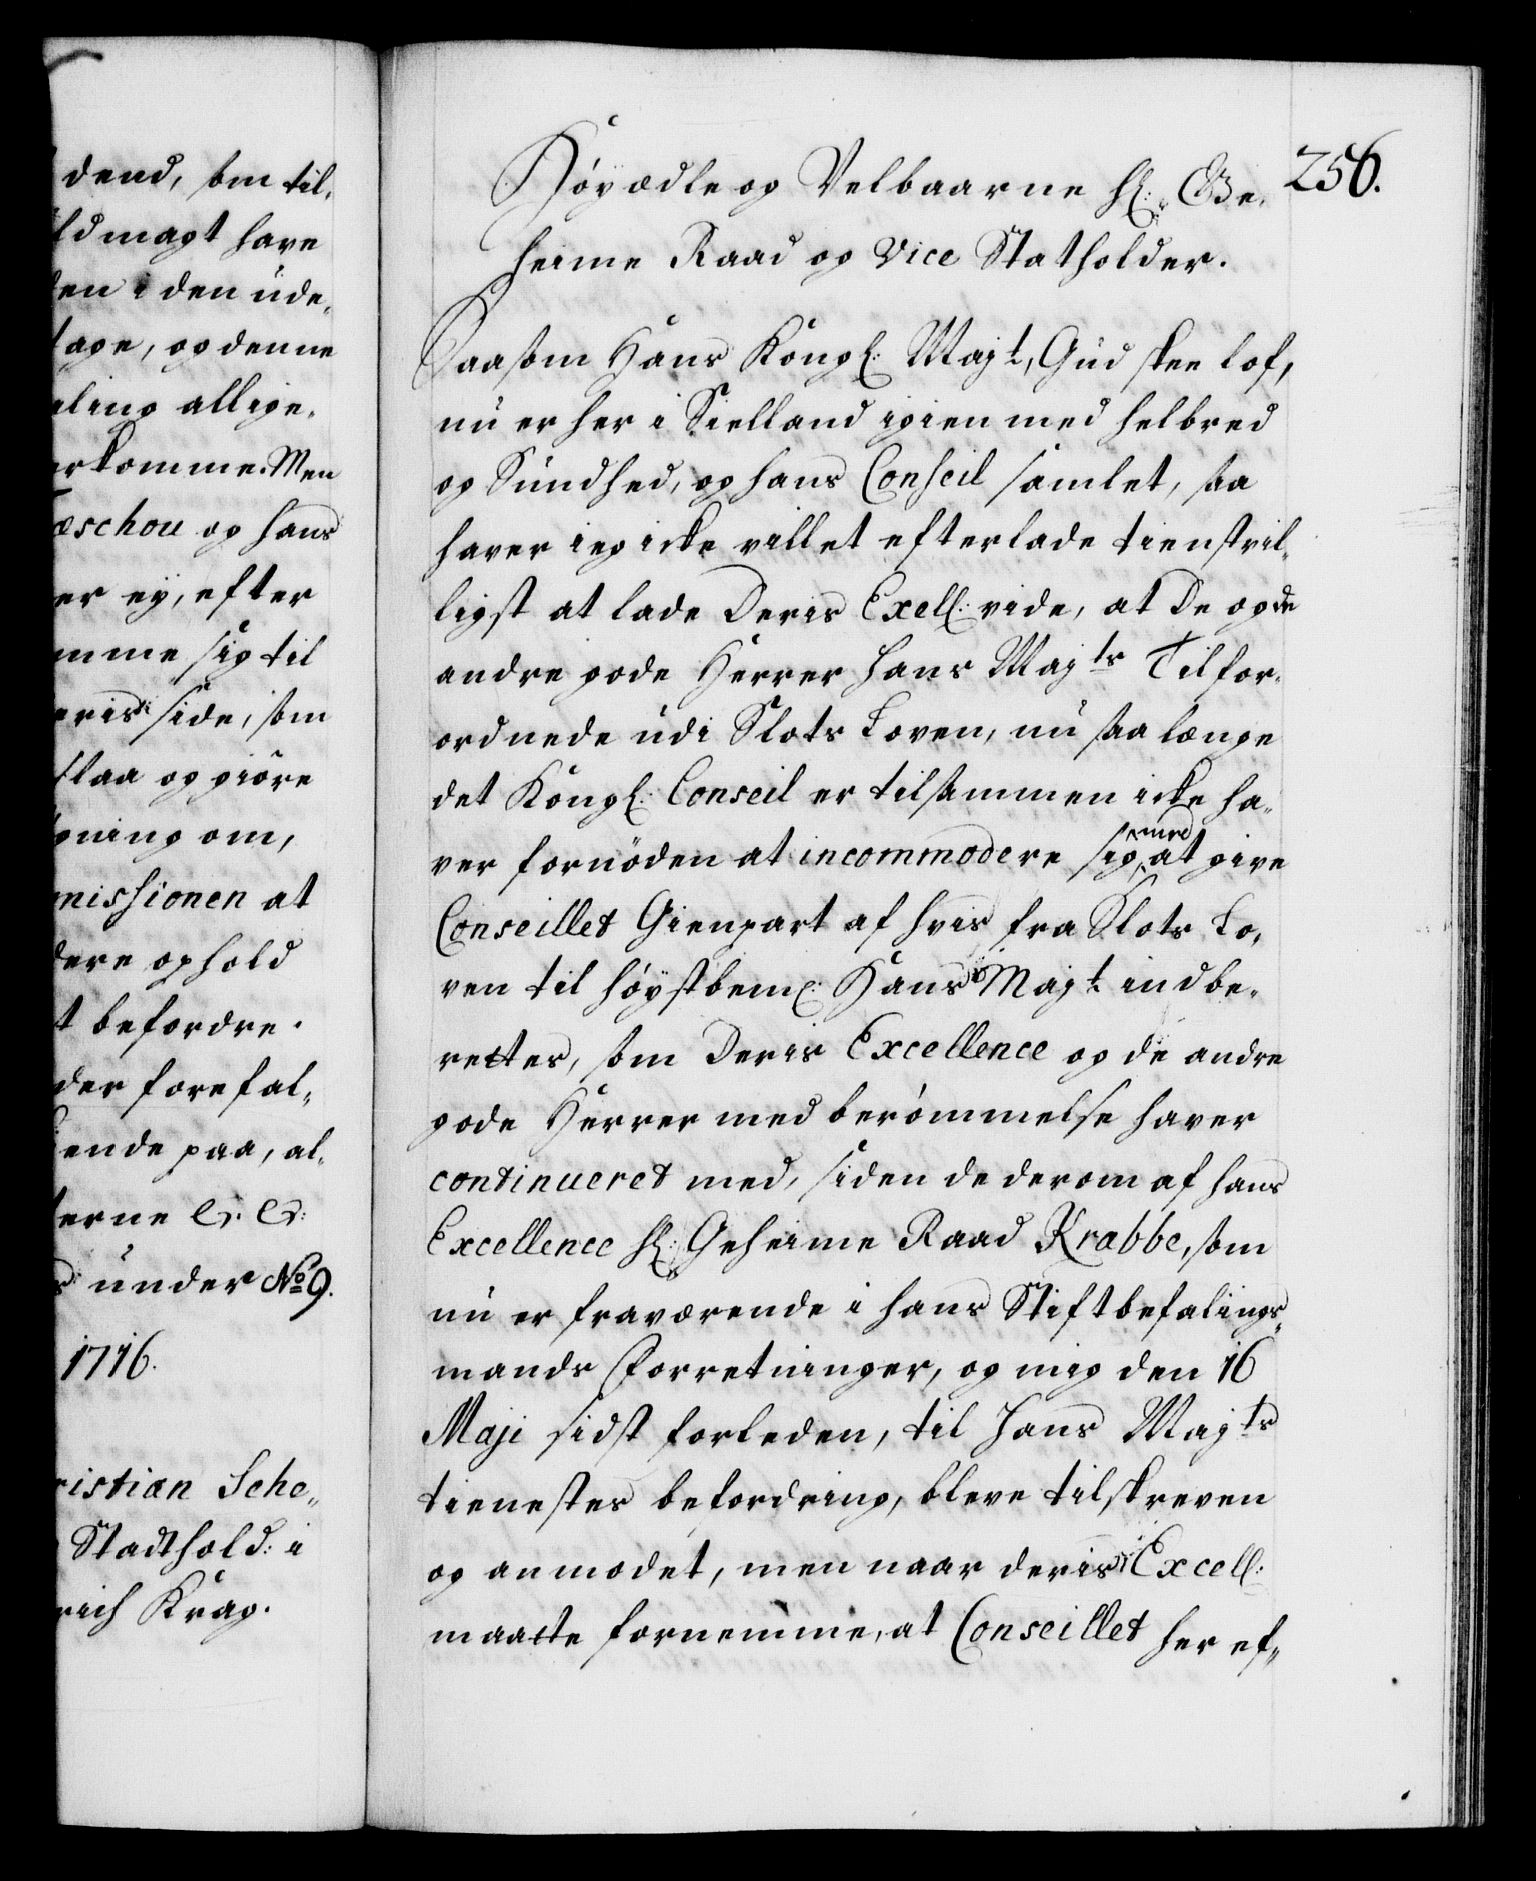 dend, som til-
ldmagt have
den i den ude-
tage, og denne
ling allige-
rkomme. Men
æschou og hans
er ey, efter
mme sig til
eris side, som
slaa og giöre
gning om,
missionen at
dere ophold
t befordre.
der forefal-
ende paa, al-
terne &. &:
under No 9.
1716.
ristian Sche-
Stadthold: i
rich Krag.
256.
Höyædle og Velbaarne Hr: Ge-
heime Raad og Vice Statholder.
Saasom Hans Kongl: Majt, Gud skee lof,
nu er her i Sielland igien med helbred
og Sundhed, og hans Conseil samlet, saa
haver ieg icke villet efterlade tienstvil-
ligst at lade Deris Exell: vide, at De og de
andre gode Herrer Hans Majts Tilfor-
ordnede udi Slots Loven, nu saa længe
det Kongl: Conseil er tilsammen icke ha-
ver fornöden at incommodere sig med at give
Conseillet Gienpart af hvis fra Slots Lo-
ven til höystbeml: Hans Majt indbe-
rettes, som Deris Excellence og de andre
gode Herrer med berömmelse haver
continueret med, siden de derom af hans
Excellence Hr: Geheime Raad Krabbe, som
nu er fraværende i hans Stiftbefalings-
mands Forretninger, og mig den 16
Maji sidst forleden, til Hans Majts
tienestes befordring, bleve tilskreven
og anmodet, men naar deris Excell:
maatte fornemme, at Conseillet her ef-